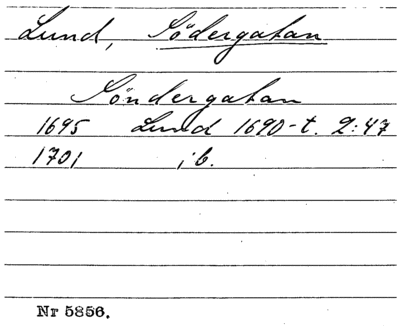 Lund, Södergatan
Söndergatan
1695 Lund 1690-t. 2:47
1701 ib.
Nr 5856.